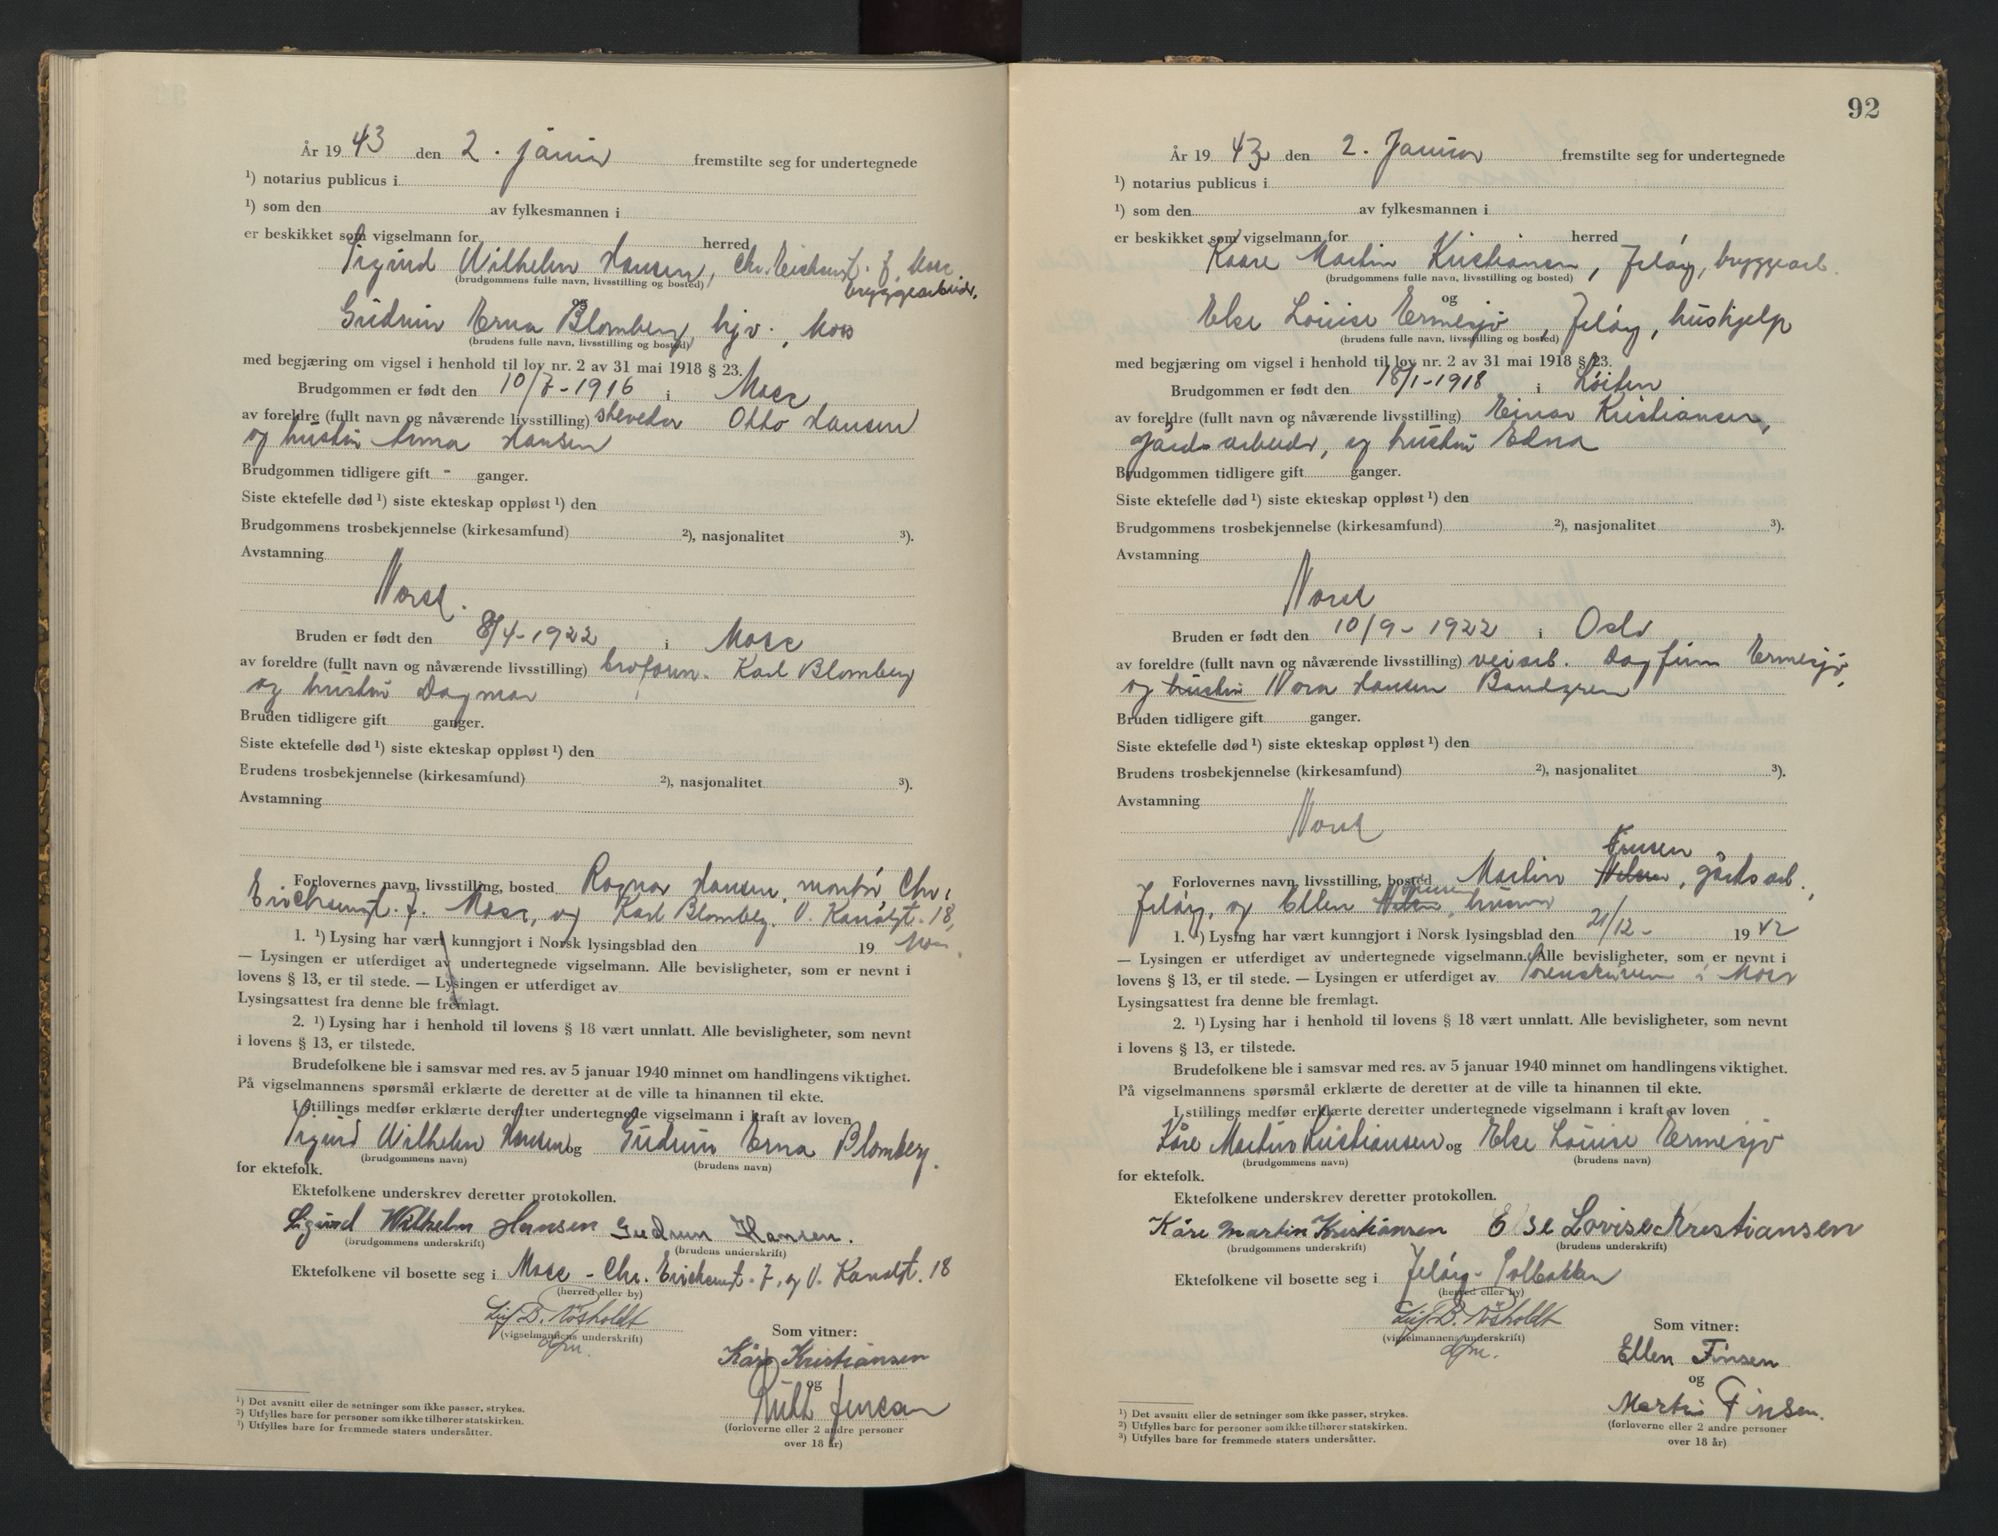 År 19 43 den 2. januar fremstilte seg for undertegnede
¹) notarius publicus i
¹) som den av fylkesmannen i
er beskikket som vigselmann for herred
Sigurd Wilhelm Hansen, Chr. f. Moss.
(brudgommens fulle navn, livsstilling og bosted) bryggearbeider.
og
Gudrun Erna Blomberg, hjv., Moss
(brudens fulle navn, livsstilling og bosted)
med begjæring om vigsel i henhold til lov nr. 2 av 31 mai 1918 § 23.
Brudgommen er født den 10/7-1916 i Moss
av foreldre (fullt navn og nåværende livsstilling) Otto Hansen
og hustru Anna Hansen
Brudgommen tidligere gift - ganger.
Siste ektefelle død ¹) siste ekteskap oppløst ¹) den
Brudgommens trosbekjennelse (kirkesamfund) ²), nasjonalitet ³).
Avstamning
Norsk.
Bruden er født den 8/4-1922 i Moss
av foreldre (fullt navn og nåværende livsstilling) Karl Blomberg
og hustru Dagmar
Bruden tidligere gift ganger.
Siste ektefelle død ¹) siste ekteskap oppløst ¹) den
Brudens trosbekjennelse (kirkesamfund) ²), nasjonalitet ³).
Avstamning
Forlovernes navn, livsstilling, bosted Ragnar Hansen, montør Chr.
7. Moss, og Karl Blomberg. 18,
1. ¹) Lysing har vært kunngjort i Norsk lysingsblad den 19 Moss.
— Lysingen er utferdiget av undertegnede vigselmann. Alle bevisligheter, som er nevnt i
lovens § 13, er til stede. — Lysingen er utferdiget av
Lysingsattest fra denne ble fremlagt.
2. ¹) Lysing har i henhold til lovens § 18 vært unnlatt. Alle bevisligheter, som nevnt
i lovens § 13, er tilstede.
Brudefolkene ble i samsvar med res. av 5 januar 1940 minnet om handlingens viktighet.
På vigselmannens spørsmål erklærte de deretter at de ville ta hinannen til ekte.
I stillings medfør erklærte deretter undertegnede vigselmann i kraft av loven
Sigurd Wilhelm Hansen og Gudrun Erna Blomberg.
(brudgommens navn) (brudens navn)
for ektefolk.
Ektefolkene underskrev deretter protokollen.
Sigurd Wilhelm Hansen Gudrun Hansen.
(brudgommens underskrift) (brudens underskrift)
Ektefolkene vil bosette seg i Moss - Chr. 7, og 18
(herred eller by)
(vigselmannens underskrift) Som vitner:
Kåre Kristiansen
og
Rutt Jensen
(forloverne eller 2 andre personer
over 18 år)
¹) Det avsnitt eller de setninger som ikke passer, strykes.
²) Utfylles bare for personer som ikke tilhører statskirken.
³) Utfylles bare for fremmede staters undersåtter.
92
År 19 43 den 2. Januar fremstilte seg for undertegnede
¹) notarius publicus i
¹) som den av fylkesmannen i
er beskikket som vigselmann for herred
Kaare Martin Kristiansen, Jeløy, bryggearb.
(brudgommens fulle navn, livsstilling og bosted)
og
Else Louise Ermesjø, Jeløy, hushjelp
(brudens fulle navn, livsstilling og bosted)
med begjæring om vigsel i henhold til lov nr. 2 av 31 mai 1918 § 23.
Brudgommen er født den 18/1-1918 i Løiten
av foreldre (fullt navn og nåværende livsstilling) Einar Kristiansen,
gårdsarbeider, og hustru Edna
Brudgommen tidligere gift ganger.
Siste ektefelle død ¹) siste ekteskap oppløst ¹) den
Brudgommens trosbekjennelse (kirkesamfund) ²), nasjonalitet ³).
Avstamning
Norsk
Bruden er født den 10/9-1922 i Oslo
av foreldre (fullt navn og nåværende livsstilling) veiarb. Dagfinn Ermesjø,
og hustru Nora Hansen
Bruden tidligere gift ganger.
Siste ektefelle død ¹) siste ekteskap oppløst ¹) den
Brudens trosbekjennelse (kirkesamfund) ²), nasjonalitet ³).
Avstamning
Norsk
Finsen
Forlovernes navn, livsstilling, bosted Martin Nilsen, gårdsarb.,
Finsen
Jeløy, og Ellen Nilsen, husmor
1. ¹) Lysing har vært kunngjort i Norsk lysingsblad den 21/12- 19 42
— Lysingen er utferdiget av undertegnede vigselmann. Alle bevisligheter, som er nevnt i
lovens § 13, er til stede. — Lysingen er utferdiget av Sorenskriveren i Moss
Lysingsattest fra denne ble fremlagt.
2. ¹) Lysing har i henhold til lovens § 18 vært unnlatt. Alle bevisligheter, som nevnt
i lovens § 13, er tilstede.
Brudefolkene ble i samsvar med res. av 5 januar 1940 minnet om handlingens viktighet.
På vigselmannens spørsmål erklærte de deretter at de ville ta hinannen til ekte.
I stillings medfør erklærte deretter undertegnede vigselmann i kraft av loven
Kåre Martin Kristiansen og Else Louise Ermesjø
(brudgommens navn) (brudens navn)
for ektefolk.
Ektefolkene underskrev deretter protokollen.
Kåre Martin Kristiansen Else Lovise Kristiansen
(brudgommens underskrift) (brudens underskrift)
Ektefolkene vil bosette seg i Jeløy - Solbakken
(herred eller by)
(vigselmannens underskrift) Som vitner:
Ellen Finsen
og
Martin Finsen.
(forloverne eller 2 andre personer
over 18 år)
¹) Det avsnitt eller de setninger som ikke passer, strykes.
²) Utfylles bare for personer som ikke tilhører statskirken.
³) Utfylles bare for fremmede staters undersåtter.